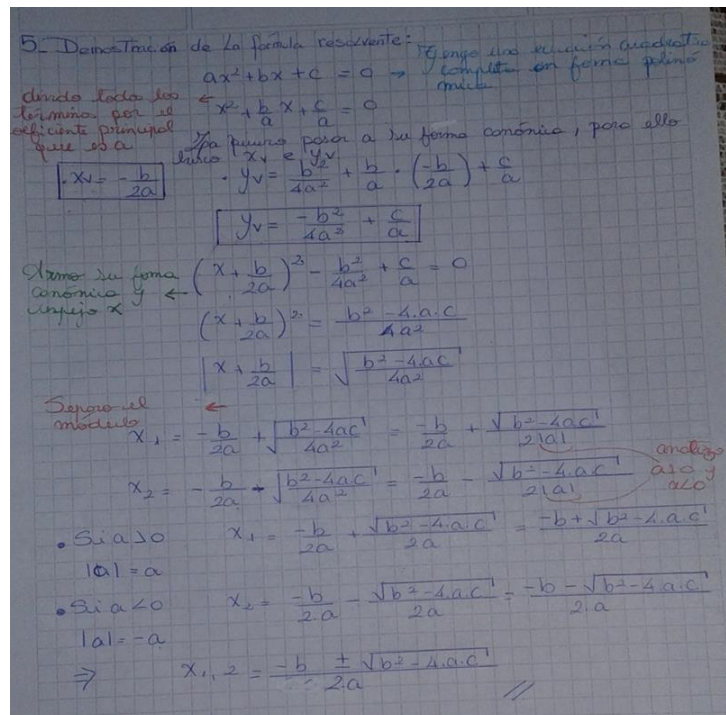 5_ Demostración de la fórmula resolvente:
ax² + bx + c = 0 → Tengo una ecuación cuadrática completa en forma polinómica
divido todos los términos por el coeficiente principal que es a ← x² + b/a x + c/a = 0
quiero pasar a su forma canónica, para ello busco xv e yv
· xv = -b/2a · yv = b²/4a² + b/a · (-b/2a) + c/a
yv = -b²/4a² + c/a
Armo su forma canónica y despejo x ← (x + b/2a)² - b²/4a² + c/a = 0
(x + b/2a)² = b² - 4.a.c/4a²
|x + b/2a| = √(b² - 4.ac/4a²)
Separo el módulo ←
x₁ = -b/2a + √(b² - 4ac/4a²) = -b/2a + √(b² - 4ac)/2|a|
x₂ = -b/2a - √(b² - 4ac/4a²) = -b/2a - √(b² - 4.a.c)/2|a| analizo a>0 y a<0
• Si a>0 x₁ = -b/2a + √(b² - 4.a.c)/2a = -b + √(b² - 4.a.c)/2a
|a| = a
• Si a<0 x₂ = -b/2.a - √(b² - 4.a.c)/2a = -b - √(b² - 4.a.c)/2.a
|a| = -a
⇒ x₁,₂ = -b ± √(b² - 4.a.c)/2.a //